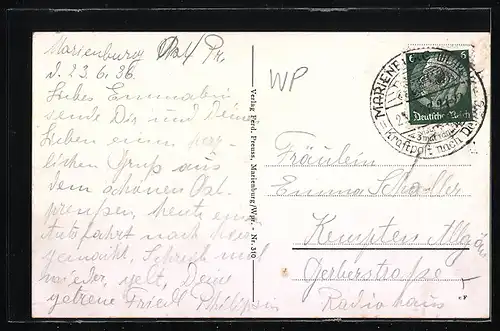 Marienburg Ost Pr.
d. 23.6.36.
Liebes Emmabri
sende Dir und Deinen
Lieben einen herz-
lichen Gruß aus
dem schönen Ost-
preußen, heute eine
Autofahrt nach hier
gemacht. Schreib mal
wieder, gelt, Deine
getreue Friedl Philipsen
Verlag Ferd. Preuss, Marienburg/Wpr. - Nr. 310
WP
6 6
Deutsches Reich
MARIENBURG
Kraftpost nach
Fräulein
Emma Schaller
Kempten Allgäu
Gerberstraße -
Radiohaus